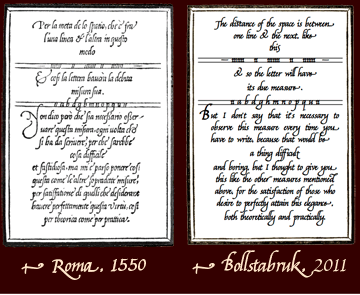 Per la meta de lo spatio, che è fra
l'una linea & l'altra in questo
modo
& cosi la lettera bauera la debita
misura sua.
a u b d g h m n o p q u n
Non dico però che sia necessario osser
uare questa misura ogni uolta che
si ha da scriuere, per che sarebbe
cosa difficile
et fastidiosa, ma mi è parso ponere cosi
questa come le altre sopradette misure,
per satisfattione di quelli che desiderano
hauere perfettamente questa Virtù, cosi
per theorica come per prattica.
Roma, 1550
The distance of the space is between
one line & the next, like
this
& so the letter will have
its due measure.
a u b d g h m n o p q u n
But I don't say that it's necessary to
observe this measure every time you
have to write, because that would be
a thing difficult
and boring, but I thought to give you
this like the other measures mentioned
above, for the satisfaction of those who
desire to perfectly attain this elegance,
both theoretically and practically.
Bollstabruk, 2011